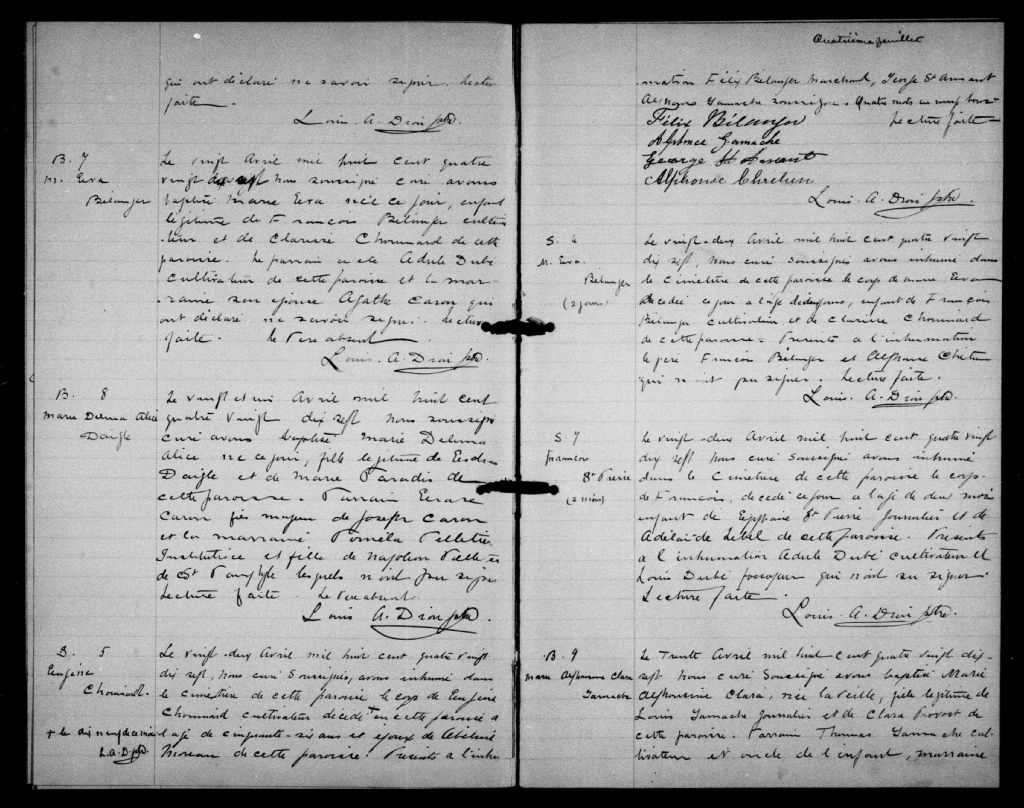 qui ont déclaré ne savoir signer. Lecture
faite.
Louis. A. Dion ptre.
B. 7
M. Eva
Bélanger
Le vingt Avril mil huit cent quatre
vingt dix sept Nous soussigné curé avons
baptisé Marie Eva née ce jour, enfant
légitime de François Bélanger cultiva
teur et de Clarisse Chouinard de cette
paroisse. Le parrain a été Adule Dubé
cultivateur de cette paroisse et la mar-
raine son épouse Agathe Caron qui
ont déclaré ne savoir signer. Lecture
faite. Le Père absent.
Louis. A. Dion ptre.
B. 8
Marie Delima Alice
Daigle
Le vingt et un Avril mil huit cent
quatre vingt dix sept Nous soussigné
curé avons baptisé Marie Delima
Alice née ce jour, fille légitime de
Daigle et de Marie Paradis de
cette paroisse. Parrain
Caron fils majeur de Joseph Caron
et la marraine Paméla Pelletier
Institutrice et fille de Napoléon Pelletier
de St lesquels n'ont pu signer
Lecture faite. Le Père absent.
Louis A. Dion ptre
S. 5
Eugène
Chouinard.
+ le dix neuf de ce mois
L.A.D ptre.
Le vingt-deux Avril mil huit cent quatre vingt
dix sept, Nous curé soussigné, avons inhumé dans
le cimetière de cette paroisse le corps de Eugène
Chouinard cultivateur décédé + en cette paroisse a
l'age de cinquante-six ans et époux de
Moreau de cette paroisse. Présents a l'inhu
Quatrième feuillet
mation Félix Bélanger Marchand, George St Amant
Alphonse Gamache soussignés. Quatre mots en
Lecture faite
Félix Bélanger
Alphonse Gamache
George St Amant
Alphonse Chretien
Louis. A. Dion ptre.
S. 6
M. Eva.
Bélanger
(2 jours)
Le vingt-deux Avril mil huit cent quatre vingt
dix sept Nous curé soussigné avons inhumé dans
le Cimetière de cette paroisse le corps de Marie Eva
décédée ce jour a l'age de deux jours, enfant de François
Bélanger cultivateur et de Clarisse Chouinard
de cette paroisse. Présents a l'inhumation
le père François Bélanger et Alphonse Chretien
qui n'ont pu signer. Lecture faite.
Louis. A. Dion ptre.
S. 7
François
St Pierre
(2 mois)
Le vingt-deux Avril mil huit cent quatre vingt
dix sept Nous curé soussigné avons inhumé
dans le Cimetière de cette paroisse le corps
de François, décédé ce jour a l'age de deux mois
enfant de Epiphane St Pierre Journalier et de
Adelaide Lebel de cette paroisse. Présents
a l'inhumation Adule Dubé cultivateur et
Louis Dubé fossoyeur qui n'ont su signer.
Lecture faite.
Louis. A. Dion ptre.
B. 9
Marie Alphonsine Clara
Gamache
Le Trente Avril mil huit cent quatre vingt dix-
sept Nous curé soussigné avons baptisé Marie
Alphonsine Clara, née la veille, fille légitime de
Louis Gamache Journalier et de Clara Provost de
cette paroisse. Parrain Thomas Gamache cul-
tivateur et oncle de l'enfant, marraine